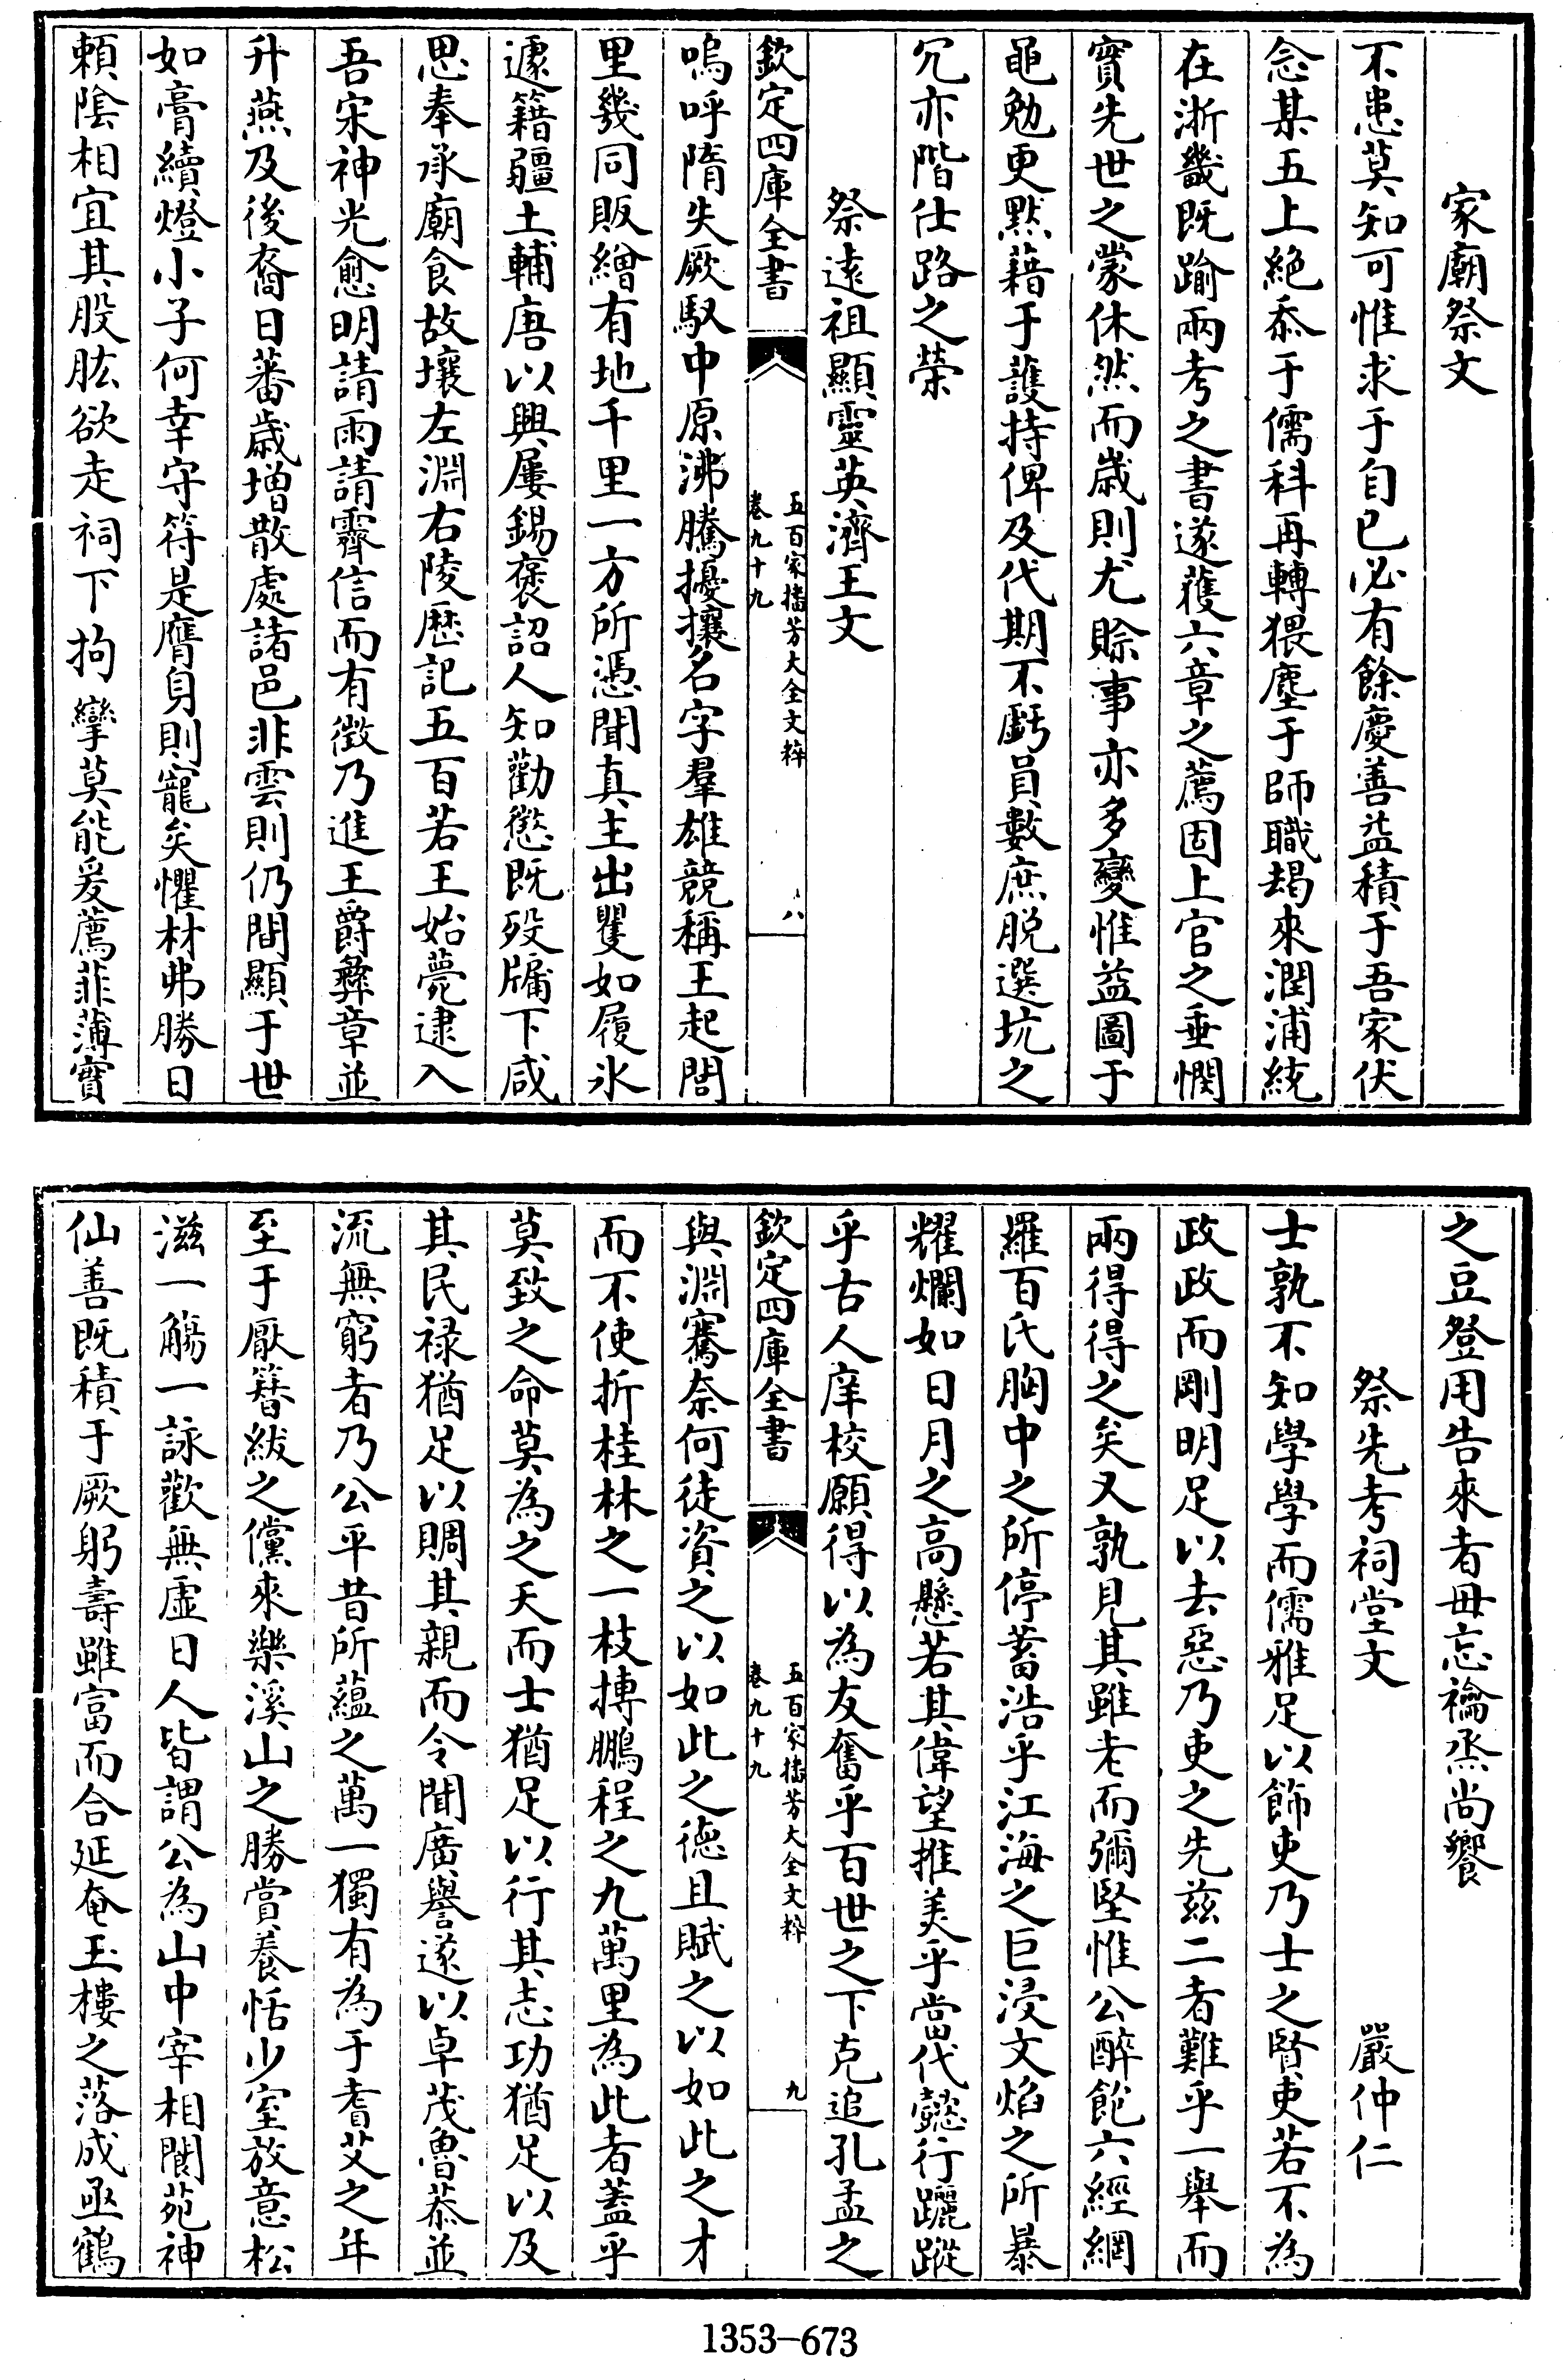 家廟祭文
不患莫知可惟求于自已必有餘慶善益積于吾家伏
念某五上絶忝于儒科再轉猥塵于師職朅來潤浦綂
在浙畿既踰兩考之書遂獲六章之薦固上官之垂憫
實先世之蒙休然而歳則尤賖事亦多變惟益圖于
黽勉更黙藉于護持俾及代期不虧員數庶脱選坑之
冗亦階仕路之榮
祭逺祖顯靈英濟王文
欽定四庫全書
五百家播芳大全文粹
卷九十九
八
嗚呼隋失厥馭中原沸騰擾攘名字羣雄競稱王起閭
里幾同販繒有地千里一方所憑聞真主出瞿如履氷
遽籍疆土輔唐以興屢錫褒詔人知勸懲既歿牖下咸
思奉承廟食故壤左淵右陵歴記五百若王始薨逮入
吾宋神光愈明請雨請霽信而有徴乃進王爵彞章並
升燕及後裔日蕃歳増散處諸邑非雲則仍間顯于世
如膏續燈小子何幸守符是膺身則寵矣懼材弗勝日
頼陰相宜其股肱欲走祠下拘攣莫能爰薦菲薄實
之豆登用告來者毋忘禴烝尚饗
祭先考祠堂文
嚴仲仁
士孰不知學學而儒雅足以飾吏乃士之賢吏若不為
政政而剛明足以去惡乃吏之先兹二者難乎一舉而
兩得得之矣又孰見其雖老而彌堅惟公醉飽六經網
羅百氏胸中之所停蓄浩乎江海之巨浸文焰之所暴
耀爛如日月之高懸若其偉望推美乎當代懿行躧蹤
乎古人庠校願得以為友奮乎百世之下克追孔孟之
欽定四庫全書
五百家播芳大全文粹
卷九十九
九
與淵騫奈何徒資之以如此之徳且賦之以如此之才
而不使折桂林之一枝摶鵬程之九萬里為此者葢乎
莫致之命莫為之天而士猶足以行其志功猶足以及
其民禄猶足以賙其親而令聞廣譽遂以卓茂魯恭並
流無窮者乃公平昔所藴之萬一獨有為于耆艾之年
至于厭簪紱之儻來樂溪山之勝賞養恬少室放意松
滋一觴一詠歡無虚日人皆謂公為山中宰相閬苑神
仙善既積于厥躬壽雖富而合延奄玉樓之落成亟鶴
1353-673